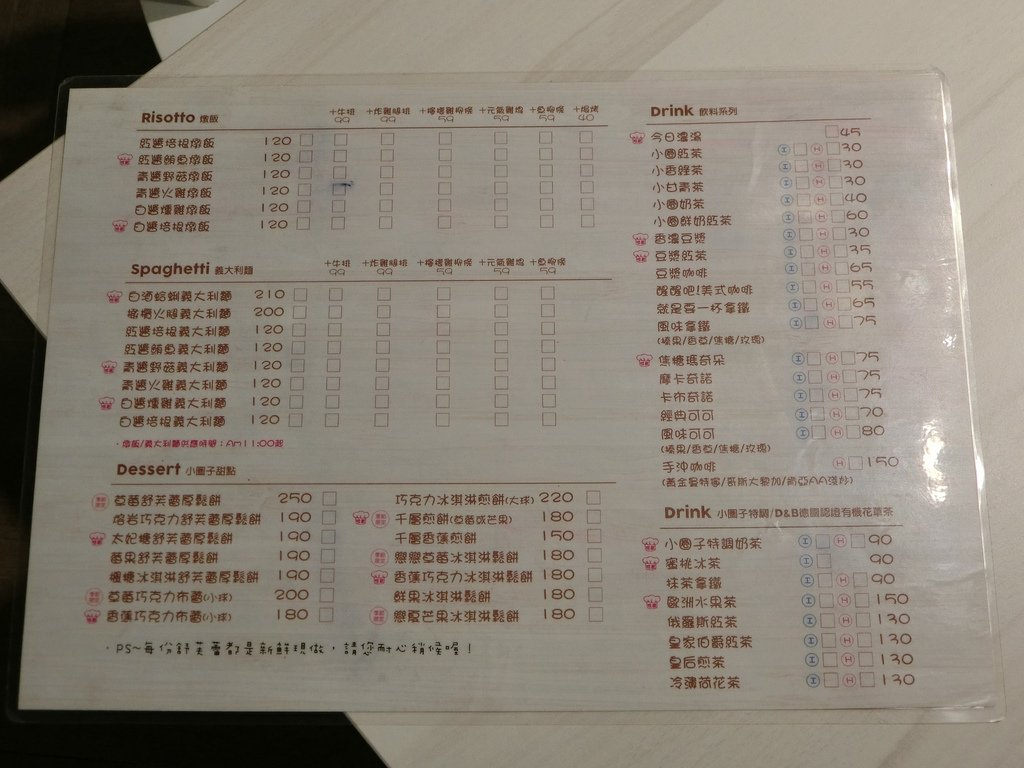 Risotto 燉飯 +牛排 99 +炸雞腿排 99 +檸檬雞柳條 59 +元氣雞塊 59 +魚柳條 59 40
紅醬培根燉飯 120
紅醬鮪魚燉飯 120
青醬野菇燉飯 120
青醬火雞燉飯 120
白醬燻雞燉飯 120
白醬培根燉飯 120
Spaghetti 義大利麵 +牛排 99 +炸雞腿排 99 +檸檬雞柳條 59 +元氣雞塊 59 +魚柳條 59
白酒蛤蜊義大利麵 210
橄欖火腿義大利麵 200
紅醬培根義大利麵 120
紅醬鮪魚義大利麵 120
青醬野菇義大利麵 120
青醬火雞義大利麵 120
白醬燻雞義大利麵 120
白醬培根義大利麵 120
・燉飯/義大利麵供應時間：Am11:00起
Dessert 小圈子甜點
草莓舒芙蕾厚鬆餅 250
熔岩巧克力舒芙蕾厚鬆餅 190
太妃糖舒芙蕾厚鬆餅 190
莓果舒芙蕾厚鬆餅 190
楓糖冰淇淋舒芙蕾厚鬆餅 190
草莓巧克力布蕾(小球) 200
香蕉巧克力布蕾(小球) 180
巧克力冰淇淋煎餅(大球) 220
千層煎餅(草莓或芒果) 180
千層香蕉煎餅 150
戀戀草莓冰淇淋鬆餅 180
香蕉巧克力冰淇淋鬆餅 180
鮮果冰淇淋鬆餅 180
戀夏芒果冰淇淋鬆餅 180
・PS~每份舒芙蕾都是新鮮現做，請您耐心稍候喔！
Drink 飲料系列
今日濃湯 45
小圈紅茶 I H 30
小香綠茶 I H 30
小甘青茶 I H 30
小圈奶茶 I H 40
小圈鮮奶紅茶 I H 60
香濃豆漿 I H 30
豆漿紅茶 I H 35
豆漿咖啡 I H 65
醒醒吧!美式咖啡 I H 55
就是要一杯拿鐵 I H 65
風味拿鐵 I H 75
(榛果/香草/焦糖/玫瑰)
焦糖瑪奇朵 I H 75
摩卡奇諾 I H 75
卡布奇諾 I H 75
經典可可 I H 70
風味可可 I H 80
(榛果/香草/焦糖/玫瑰)
手沖咖啡 H 150
(黃金曼特寧/哥斯大黎加/肯亞AA淺炒)
Drink 小圈子特調/D&B德國認證有機花草茶
小圈子特調奶茶 I H 90
蜜桃冰茶 I 90
抹茶拿鐵 I H 90
歐洲水果茶 I H 150
俄羅斯紅茶 I H 130
皇家伯爵紅茶 I H 130
皇后煎茶 I H 130
冷薄荷花茶 I H 130